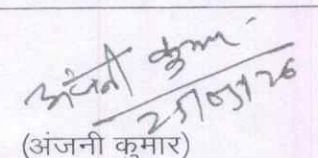 अंजनी कुमार
25/03/26
(अंजनी कुमार)